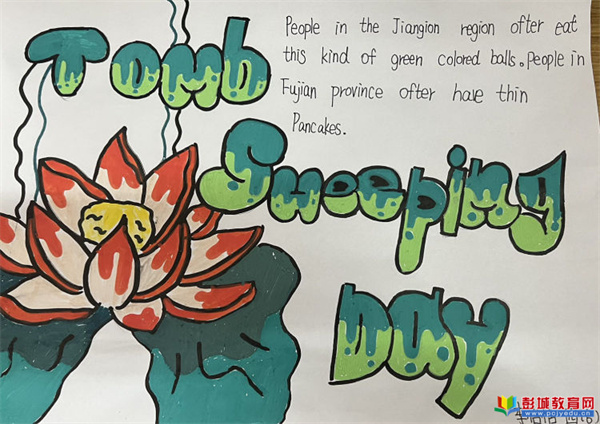 People in the Jiangion region ofter eat
this kind of green colored balls。People in
Fujian province ofter have thin
Pancakes.
Tomb
Sweeping
Day
彭城教育网
www.pcjyedu.cn